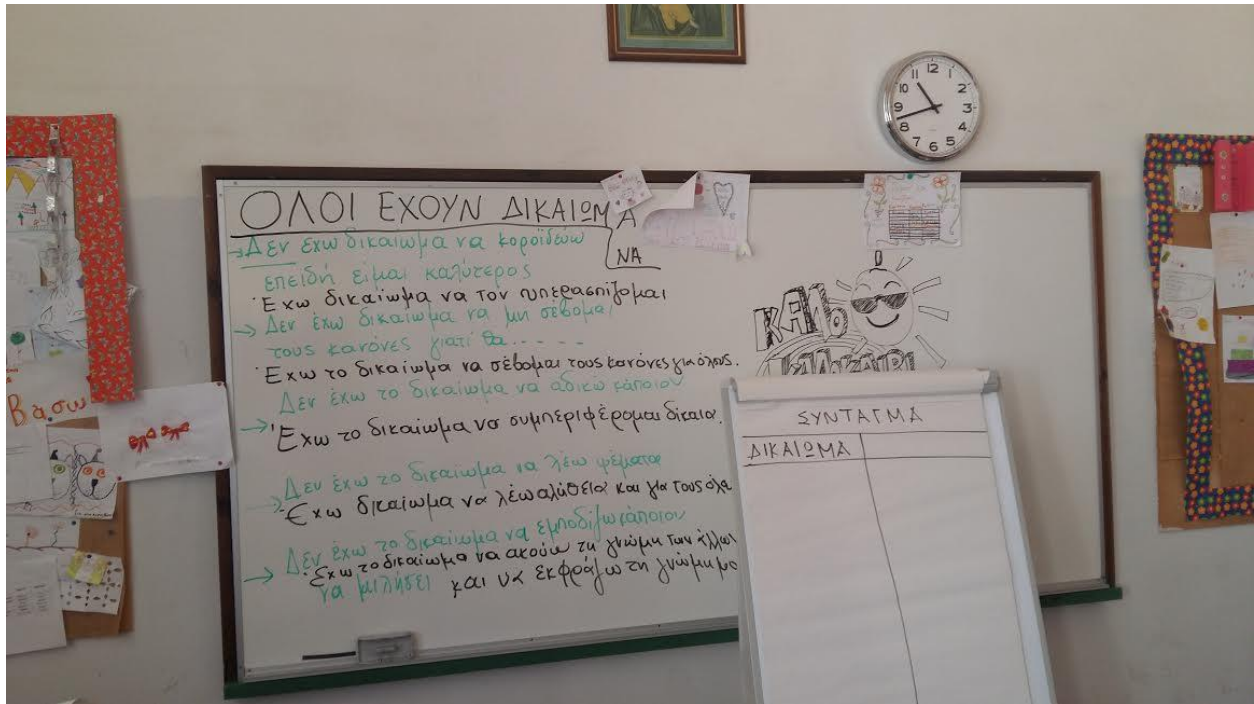 ΟΛΟΙ ΕΧΟΥΝ ΔΙΚΑΙΩΜΑ
ΝΑ
→ Δεν έχω δικαίωμα να κοροϊδεύω
επειδή είμαι καλύτερος
Έχω δικαίωμα να τον υπερασπίζομαι
→ Δεν έχω δικαίωμα να μη σέβομαι
τους κανόνες γιατί θα.....
Έχω το δικαίωμα να σέβομαι τους κανόνες για όλους.
Δεν έχω το δικαίωμα να αδικώ κάποιον
→ Έχω το δικαίωμα να συμπεριφέρομαι δίκαια.
Δεν έχω το δικαίωμα να λέω ψέματα
→ Έχω δικαίωμα να λέω αλήθεια και για τους
Δεν έχω το δικαίωμα να εμποδίζω κάποιον
→ Έχω το δικαίωμα να ακούω τη γνώμη των άλλων
να μιλήσει και να εκφράζω τη γνώμη μο
ΚΑΛΟ
ΚΑΛΟΚΑΙΡΙ
ΣΥΝΤΑΓΜΑ
ΔΙΚΑΙΩΜΑ
Βάσω
12
1
2
3
4
5
6
7
8
9
10
11